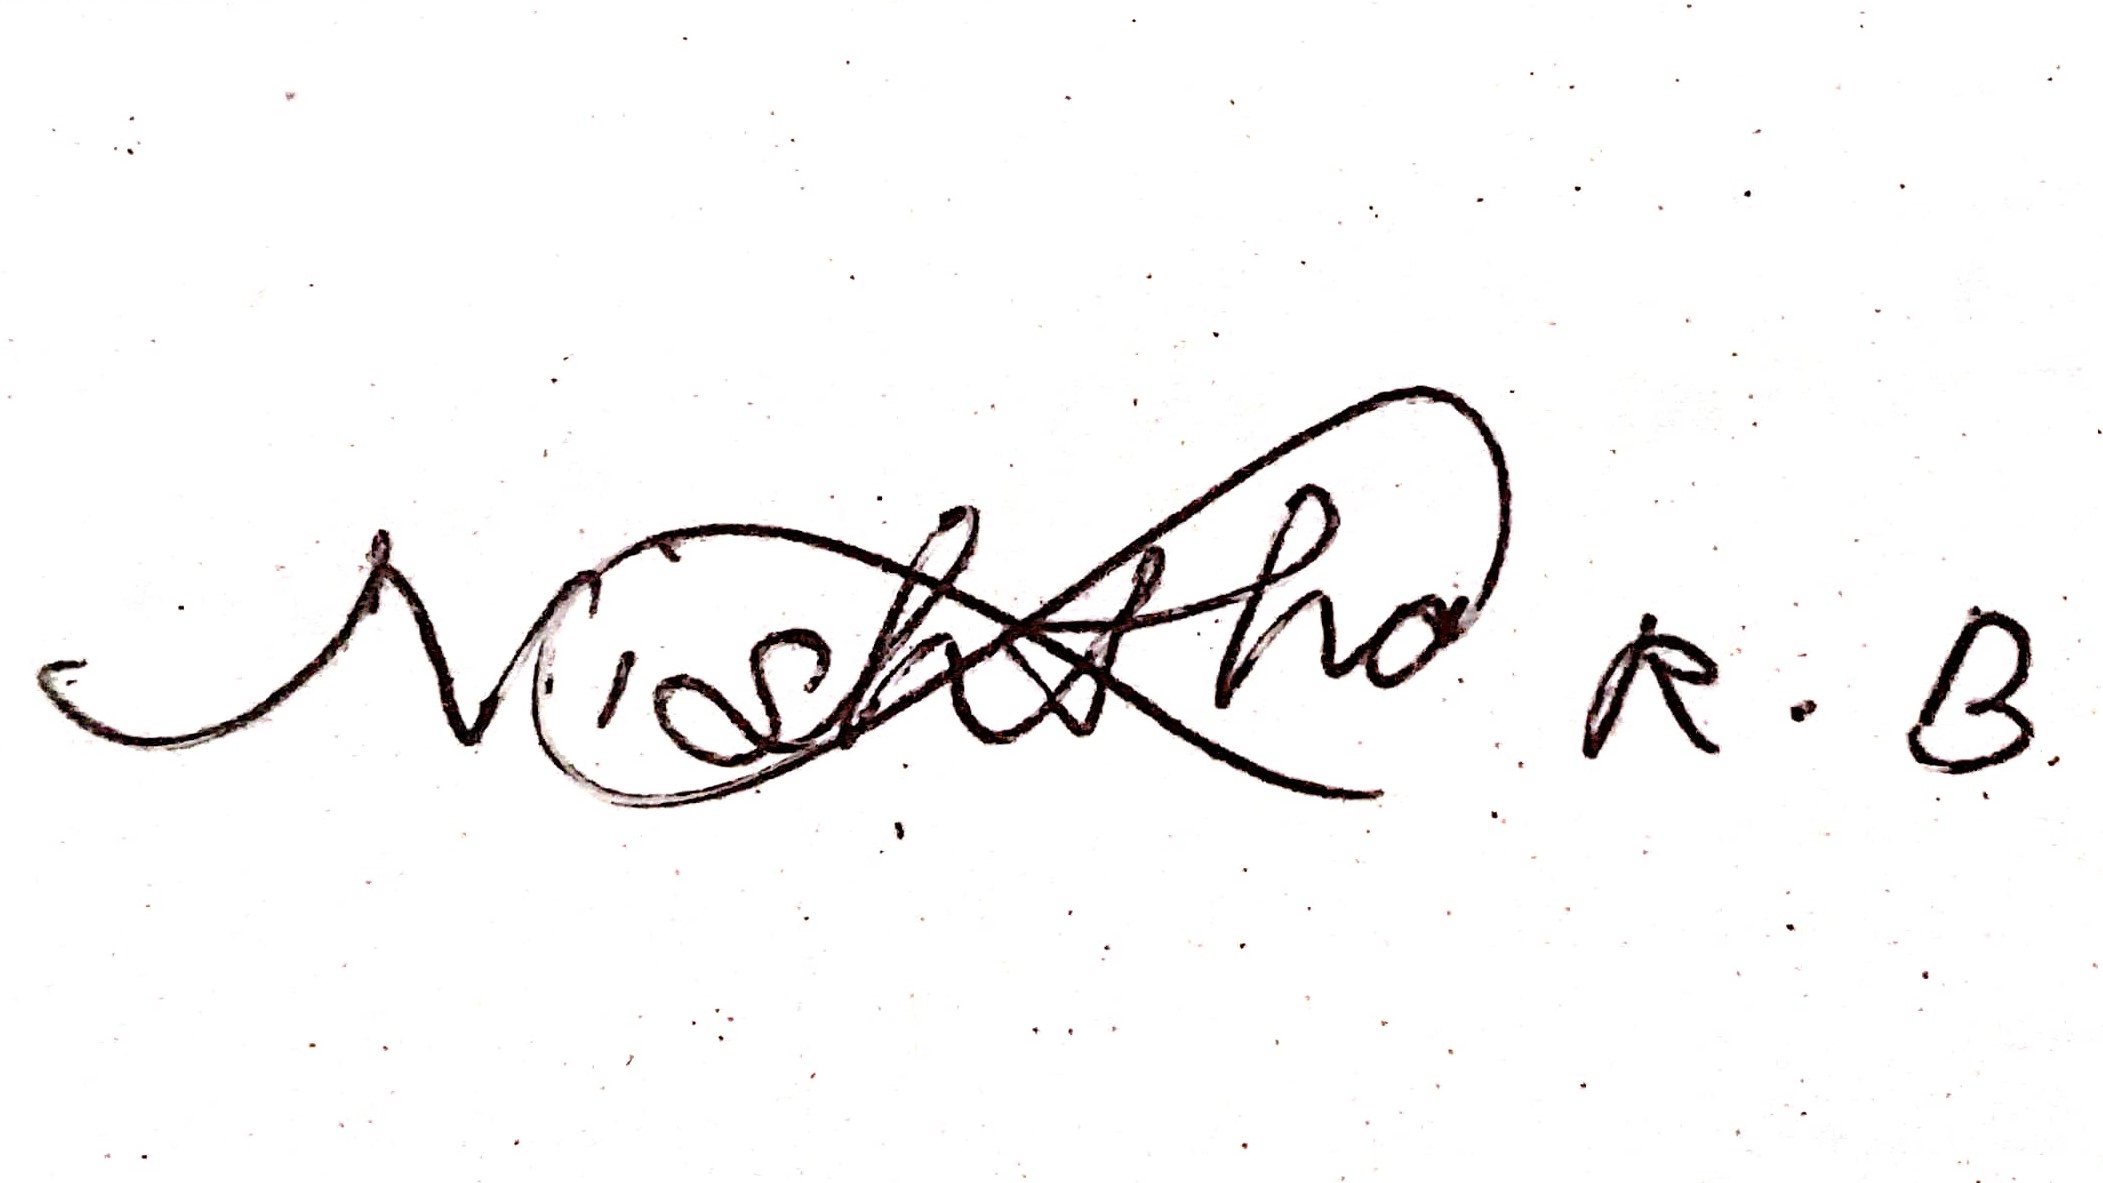 Nishitha R. B.